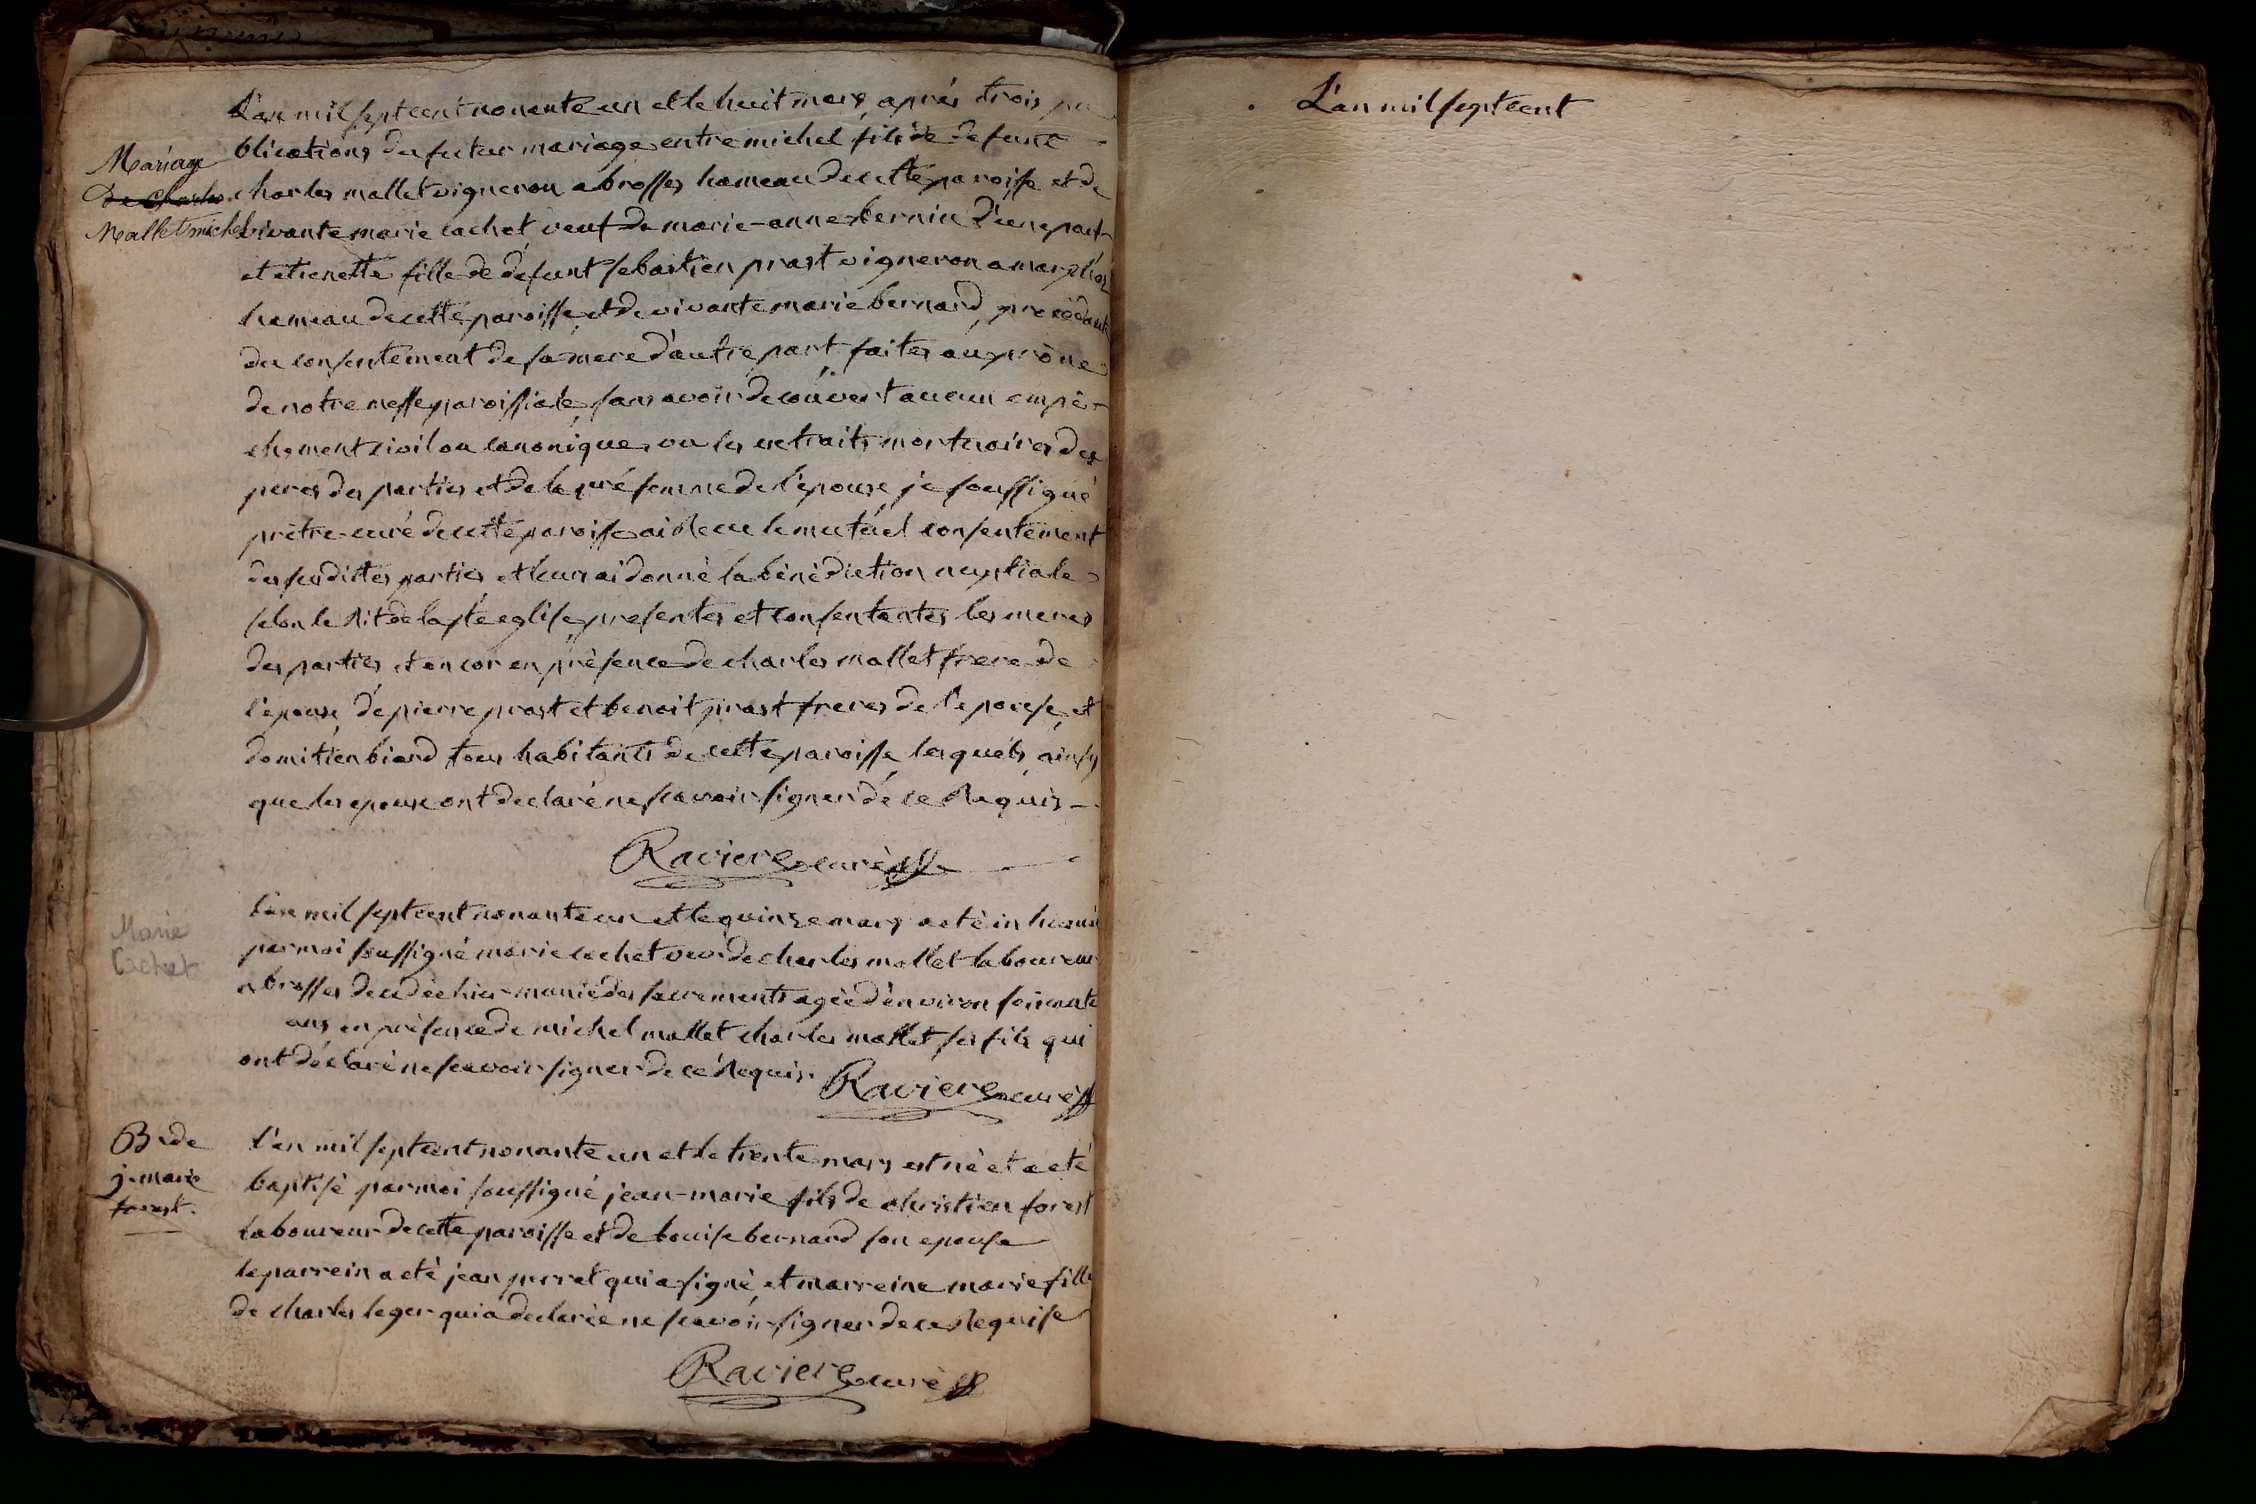 L'an mil sept cent nonante un et le huit mars, après trois pu
blications du futur mariage entre michel fils de defunt
Mariage
de Charles
Mallet michel
charles mallet vigneron a brosses hameau de cette paroisse et de
vivante marie cachet veuf de marie-anne bernin d'une part
et etienette fille de defunt sebastien prast vigneron a
hameau de cette paroisse, et de vivante marie bernard, procèdant
du consentement de sa mere d'autre part, faites au prône
de notre messe paroissiale, sans avoir decouvert aucun empè-
chement civil ou canonique, vu les extraits mortuaires des
peres des parties et de la pre femme de l'epoux, je soussigné
prêtre-curé de cette paroisse ai Recu le mutuel consentement
des susdittes parties et leur ai donné la bénédiction nuptiale
selon le Rit de la ste eglise, presentes et consentantes les meres
des parties, et encor en présence de charles mallet frere de
l'epoux, de pierre prost et benoit prost freres de l'epouse, et
domitien biard tous habitants de cette paroisse, lesquels, ainsy
que les epoux ont declaré ne scavoir signer de ce Requis -
Raviere curé
Marie
Cachet
L'an mil sept cent nonante un et le quinze mars a eté inhumé
par moi soussigné marie cachet veuve de charles mallet laboureur
a brosses decedée hier munie des sacrements agée d'environ soixante
ans en présence de michel mallet charles mallet ses fils qui
ont déclaré ne scavoir signer de cé Requis.
Raviere curé
B. de
j-marie
forest.
L'an mil sept cent nonante un et le trente mars est né et a eté
baptisé par moi soussigné jean-marie fils de christien forest
laboureur de cette paroisse et de louise bernard son epouse
le parrein a eté jean perret qui a signé, et marreine marie fille
de charles leger qui a declarée ne scavoir signer de ce Requise
Raviere curé
L'an mil sept cent